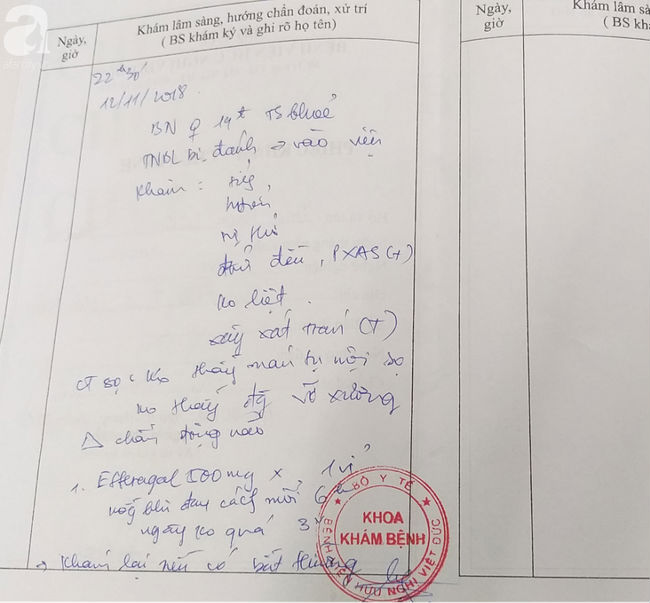 a
Ngày, giờ
Khám lâm sàng, hướng chẩn đoán, xử trí
( BS khám ký và ghi rõ họ tên)
Ngày, giờ
Khám lâm sà
( BS khá
22h30'
12/11/2018.
BN ♀ 19t TS khoẻ
TNBL bị đánh → vào viện
Khám : tỉnh,
đều, PXAS (+)
ko liệt.
xây xát trán (T)
CT sọ: Ko thấy máu tụ nội sọ
ko thấy đg vỡ xương
△ chấn động não
1. Efferalgal 500mg x 1 vỉ
uống khi đau cách mỗi 6h
ngày ko quá 3v
→ Khám lại nếu có bất thường
BỘ Y TẾ
KHOA
KHÁM BỆNH
BỆNH VIỆN HỮU NGHỊ VIỆT ĐỨC